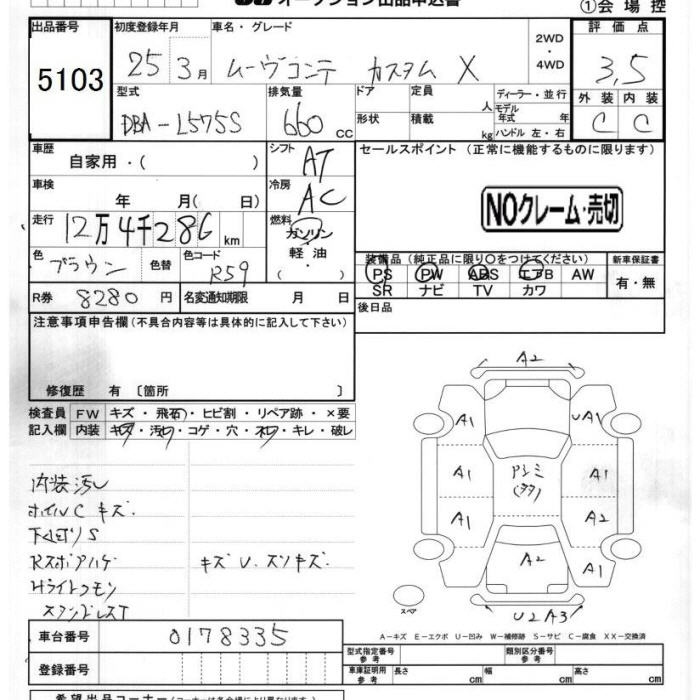 オークション出品申込書
①会場控
出品番号
5103
初度登録年月
25 3月
車名・グレード
ムーヴコンテ カスタム X
2WD
・
4WD
評価点
3.5
外装 内装
C C
型式
DBA-L575S
排気量
660 cc
ドア
形状
定員 人
積載 kg
ディーラー・並行
モデル年式 年
ハンドル 左・右
車歴
自家用・( )
シフト
AT
セールスポイント (正常に機能するものに限ります)
NOクレーム・売切
車検
年 月( 日)
冷房
AC
走行
12万4千286 km
燃料
ガソリン
軽油
( )
色
ブラウン
色替
色コード
R59
装備品(純正品に限り○をつけてください)
PS PW ABS エアB AW
SR ナビ TV カワ
新車保証書
有・無
R券 8280 円
名変通知期限 月 日
後日品
注意事項申告欄(不具合内容等は具体的に記入して下さい)
修復歴 有 〔箇所 〕
検査員
記入欄
FW キズ・飛石・ヒビ割・リペア跡・×要
内装 キズ・汚れ・コゲ・穴・ヌレ・キレ・破レ
内装汚レ
ホイルC キズ
下廻りS
Rスポアハゲ キズU.スソキズ
Hライトクモン
ステップレスT
A2
A1 UA1
A1 A1
A1 A2
A1
A2
U2A3
スペア
A-キズ E-エクボ U-凹み W-補修跡 S-サビ C-腐食 XX-交換済
車台番号
0178335
登録番号
型式指定番号
参考
類別区分番号
参考
車庫証明用
参考
長さ cm
幅 cm
高さ cm
希望出品コーナー